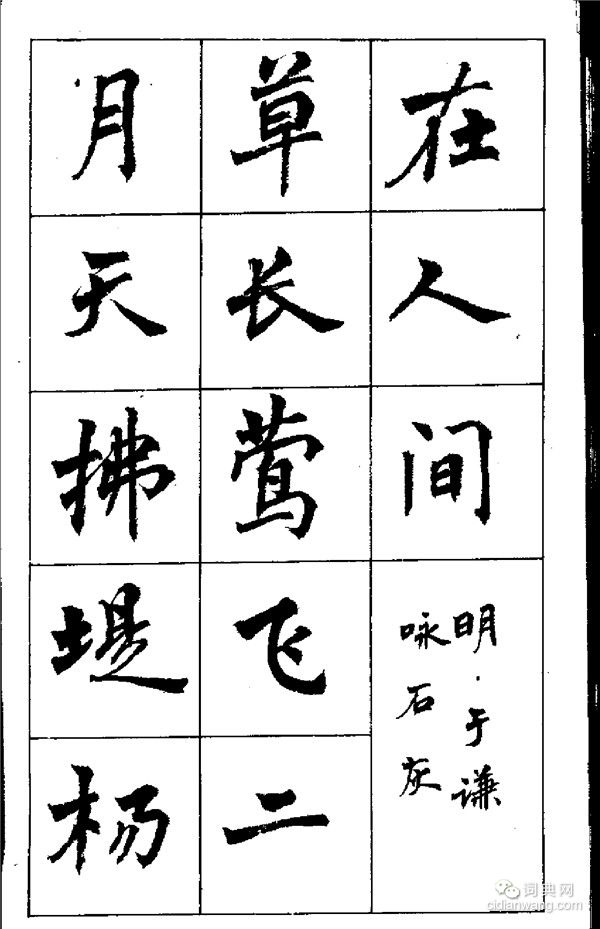 在人间
明·于谦
咏石灰
草长莺飞二
月天拂堤杨
词典网
cidianwang.com